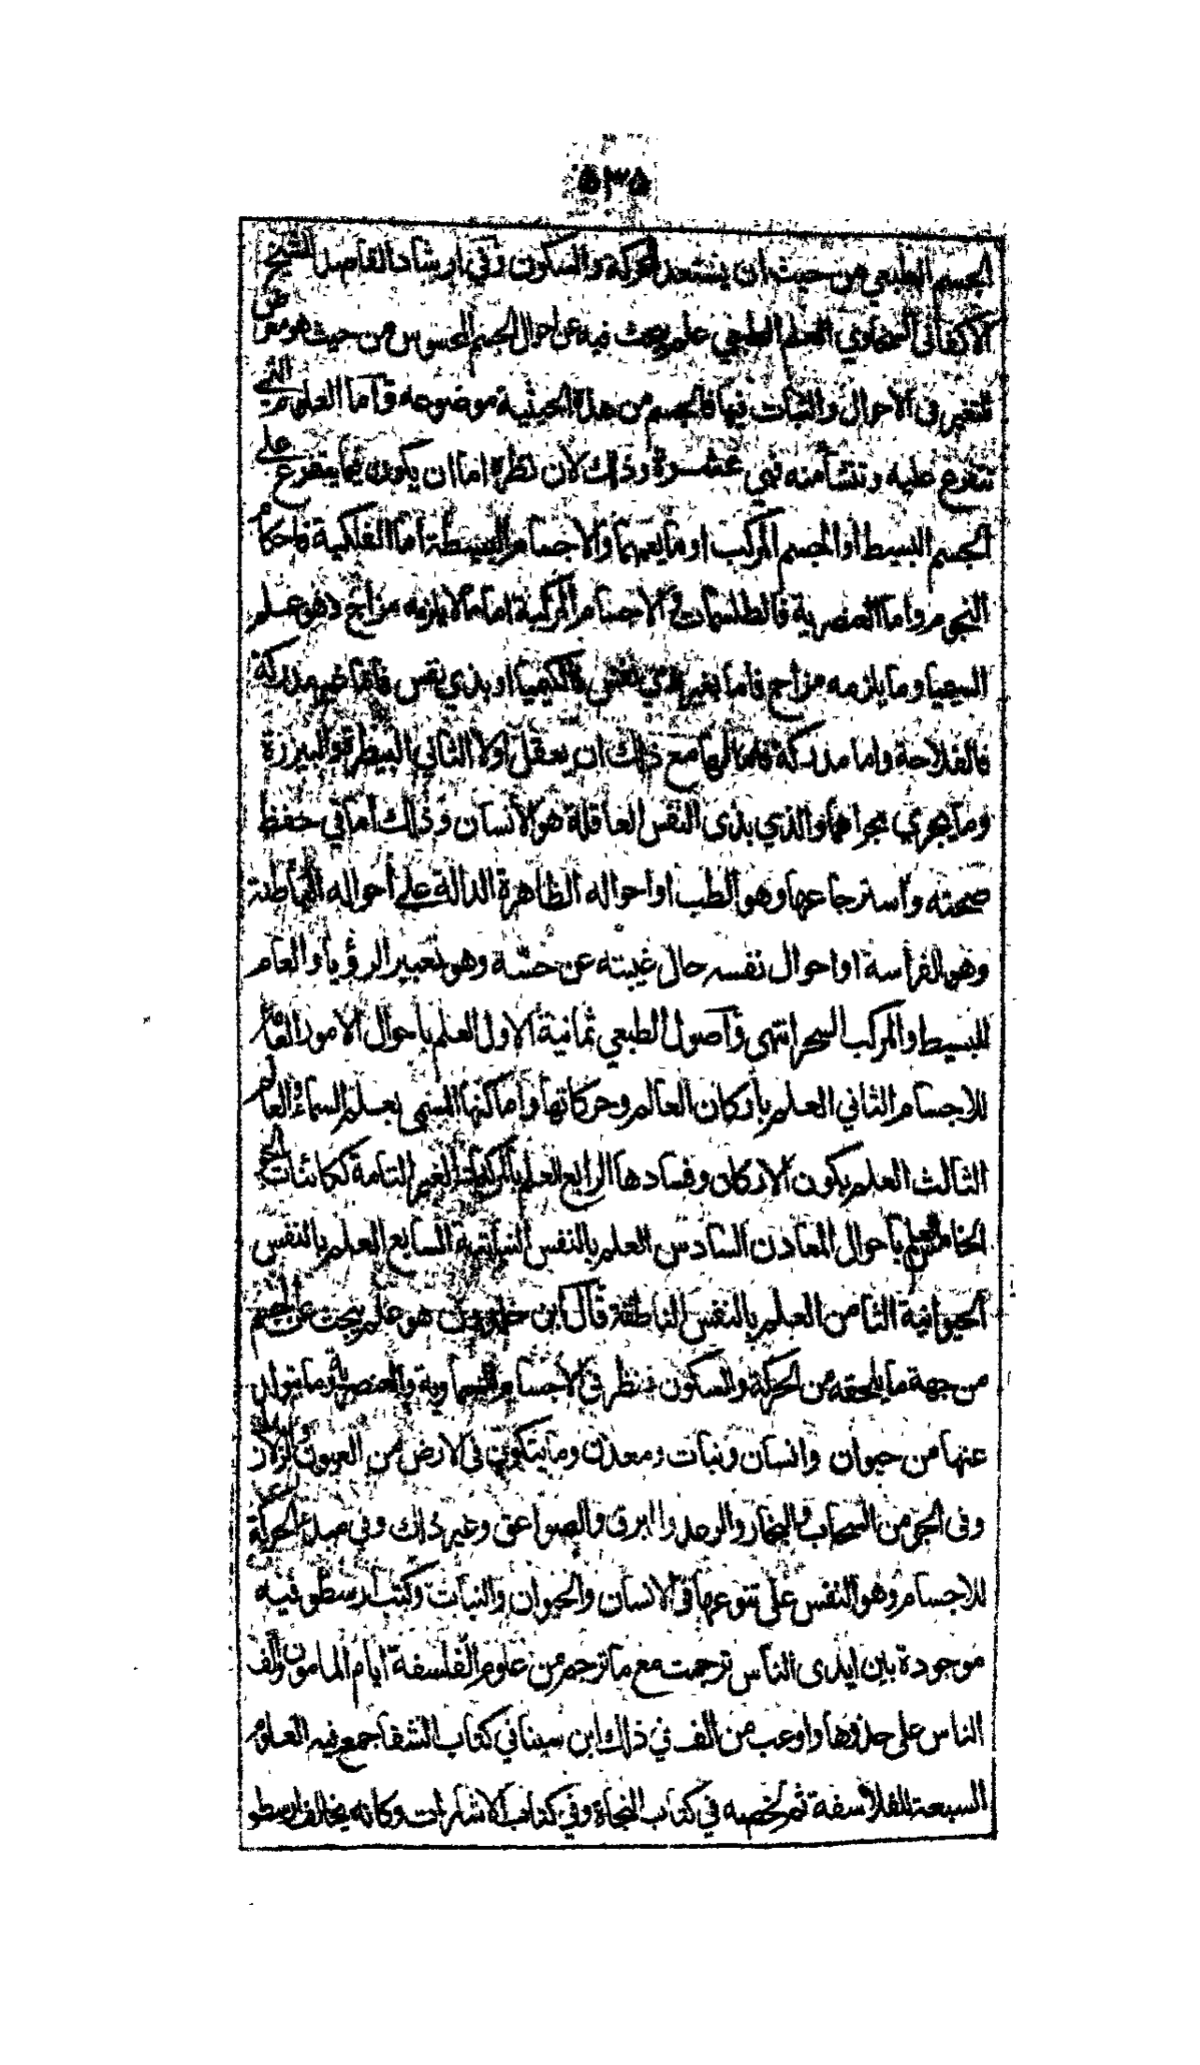 ٥٣٥
الجسم الطبعي من حيث ان يستعد للحركة والسكون وفي ارشاد القاصد للشيخ
الاكفاني السخاوي العلم الطبعي علم يبحث فيه عن احوال الجسم المحسوس من حيث هو معرض
للتغير في الاحوال والثبات فيها فالجسم من هذه الحيثية موضوعه وآما العلوم التي
تتفرع عليه وتنشأ منه فهي عشرة وذلك لان نظره اما ان يكون فيما يتفرع على
الجسم البسيط او الجسم المركب او ما يعمهما والاجسام البسيطة اما الفلكية فاحكام
النجوم واما العنصرية فالطلسمات والاجسام المركبة اما ما لا يلزمه مزاج وهو علم
السيميا وما يلزمه مزاج فاما بغير ذي نفس فالكيميا او بذي نفس فاما غير مدركة
فالفلاحة واما مدركة فاما لها مع ذلك ان يعقل اولا الثاني البيطرة والبيزرة
وما يجري مجراهما والذي بذي النفس العاقلة هو الانسان وذلك اما في حفظ
صحته واسترجاعها وهو الطب او احواله الظاهرة الدالة على احواله الباطنة
وهو الفراسة او احوال نفسه حال غيبته عن حسه وهو تعبير الرؤيا والعام
للبسيط والمركب السحر انتهى وآصول الطبعي ثمانية الاول العلم باحوال الامور العامة
للاجسام الثاني العلم بأركان العالم وحركاتها واماكنها المسمى بعلم السماء والعالم
الثالث العلم بكون الاركان وفسادها الرابع العلم بالمركبات الغير التامة ككائنات الجو
الخامس العلم باحوال المعادن السادس العلم بالنفس النباتية السابع العلم بالنفس
الحيوانية الثامن العلم بالنفس الناطقة قال ابن خلدون هو علم يبحث عن الجسم
من جهة ما يلحقه من الحركة والسكون فينظر في الاجسام السماوية والعنصرية وما يتولد
عنها من حيوان وانسان ونبات ومعدن وما يتكون في الارض من العيون والزلازل
وفى الجو من السحاب والبخار والرعد والبرق والصواعق وغير ذلك وفي مبدء الحركة
للاجسام وهو النفس على تنوعها في الانسان والحيوان والنبات وكتب ارسطو فيه
موجودة بين ايدى الناس ترجمت مع ما ترجم من علوم الفلسفة ايام المامون والف
الناس على حذوها واوعب من الف في ذلك ابن سينا في كتاب الشفا جمع فيه العلوم
السبعة للفلاسفة ثم لخصه في كتاب النجاة وفي كتاب الاشارات وكانه يخالف ارسطو